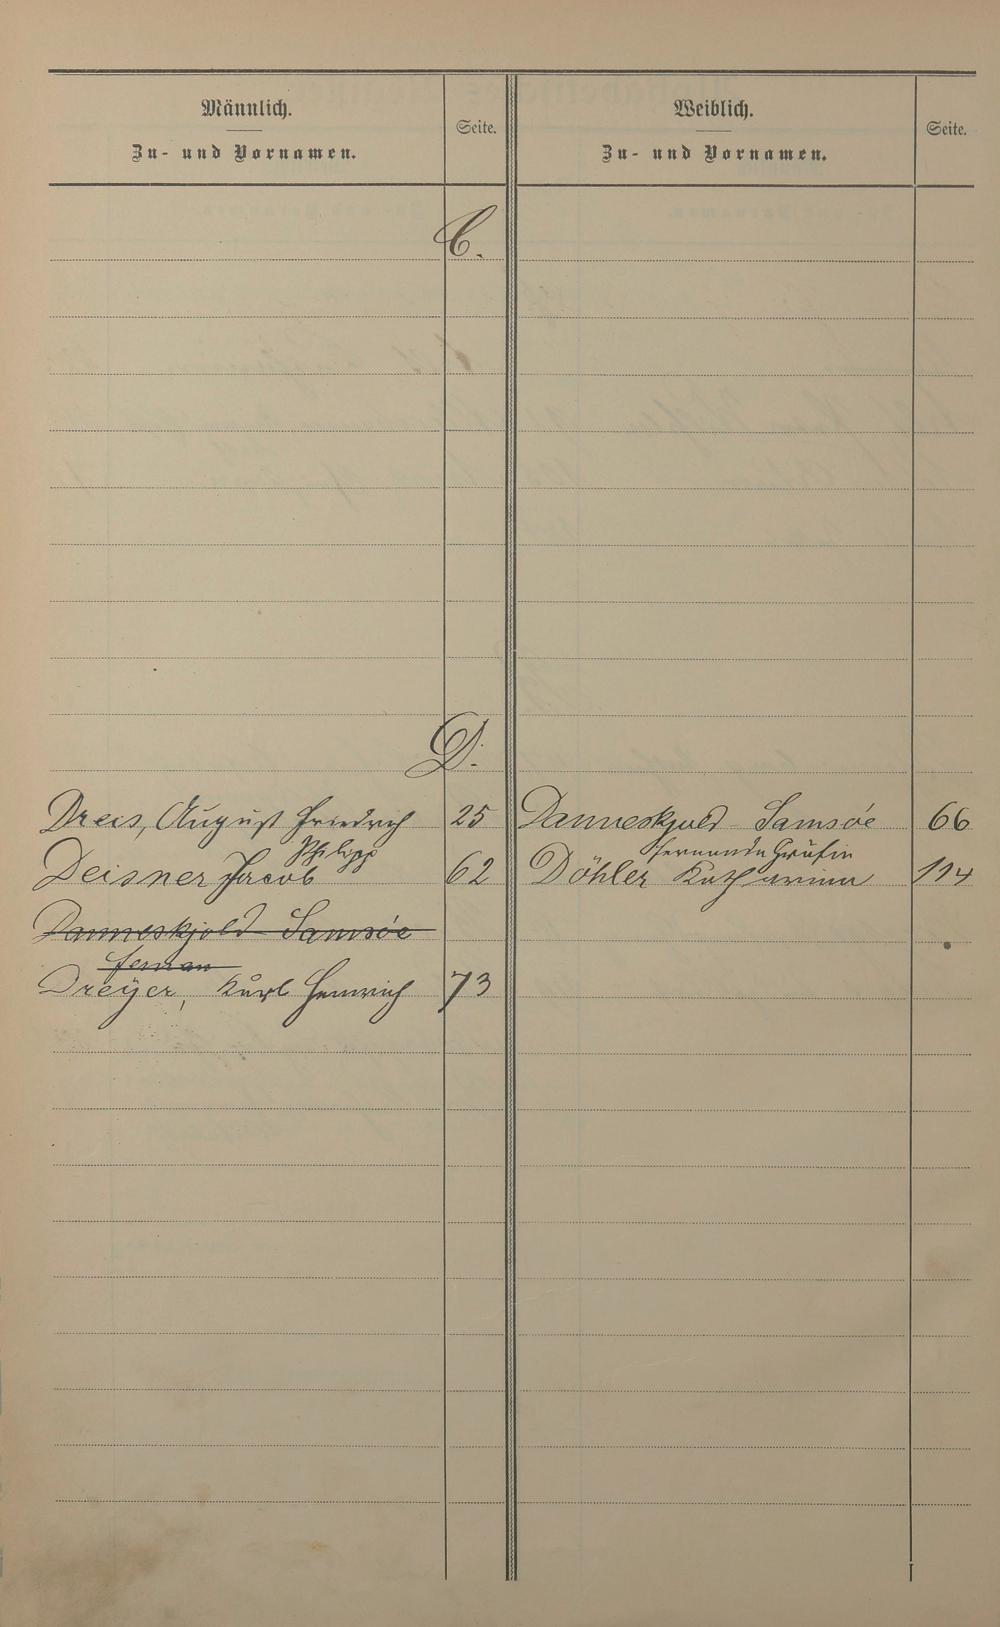 Männlich.
Zu- und Vornamen.
Seite.
Weiblich.
Zu- und Vornamen.
Seite.
C.
D.
Dreis, August Friedrich 25
Philipp
Deisner Jacob 62
Danneskjold Samsöe
fernan
Dreÿer, Kurl Heinrich 73
Danneskjold-Samsóe 66
Fernanda Gräfin
Döhler Katharina 114